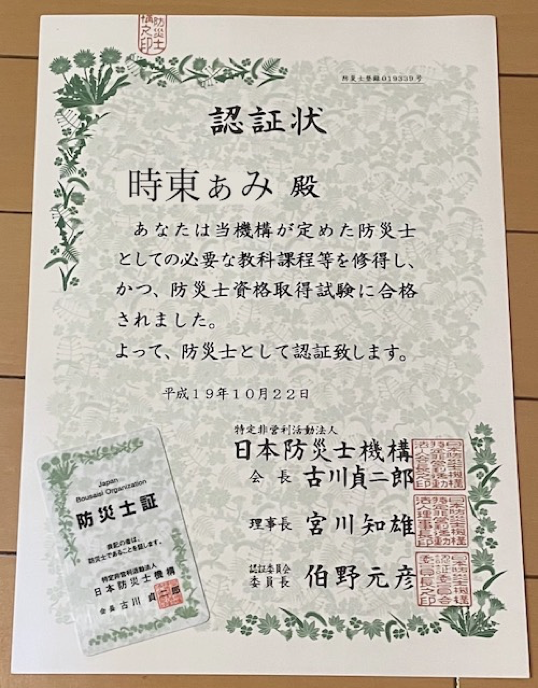 防災士
機構之印
防災士登録019339号
認証状
時東ぁみ 殿
あなたは当機構が定めた防災士
としての必要な教科課程等を修得し、
かつ、防災士資格取得試験に合格
されました。
よって、防災士として認証致します。
平成19年10月22日
特定非営利活動法人
日本防災士機構
会長 古川貞二郎
理事長 宮川知雄
認証委員会
委員長 伯野元彦
Japan
Bousaisi Organization
防災士証
表記の者は、
防災士であることを証します。
特定非営利活動法人
日本防災士機構
会長 古川貞二郎